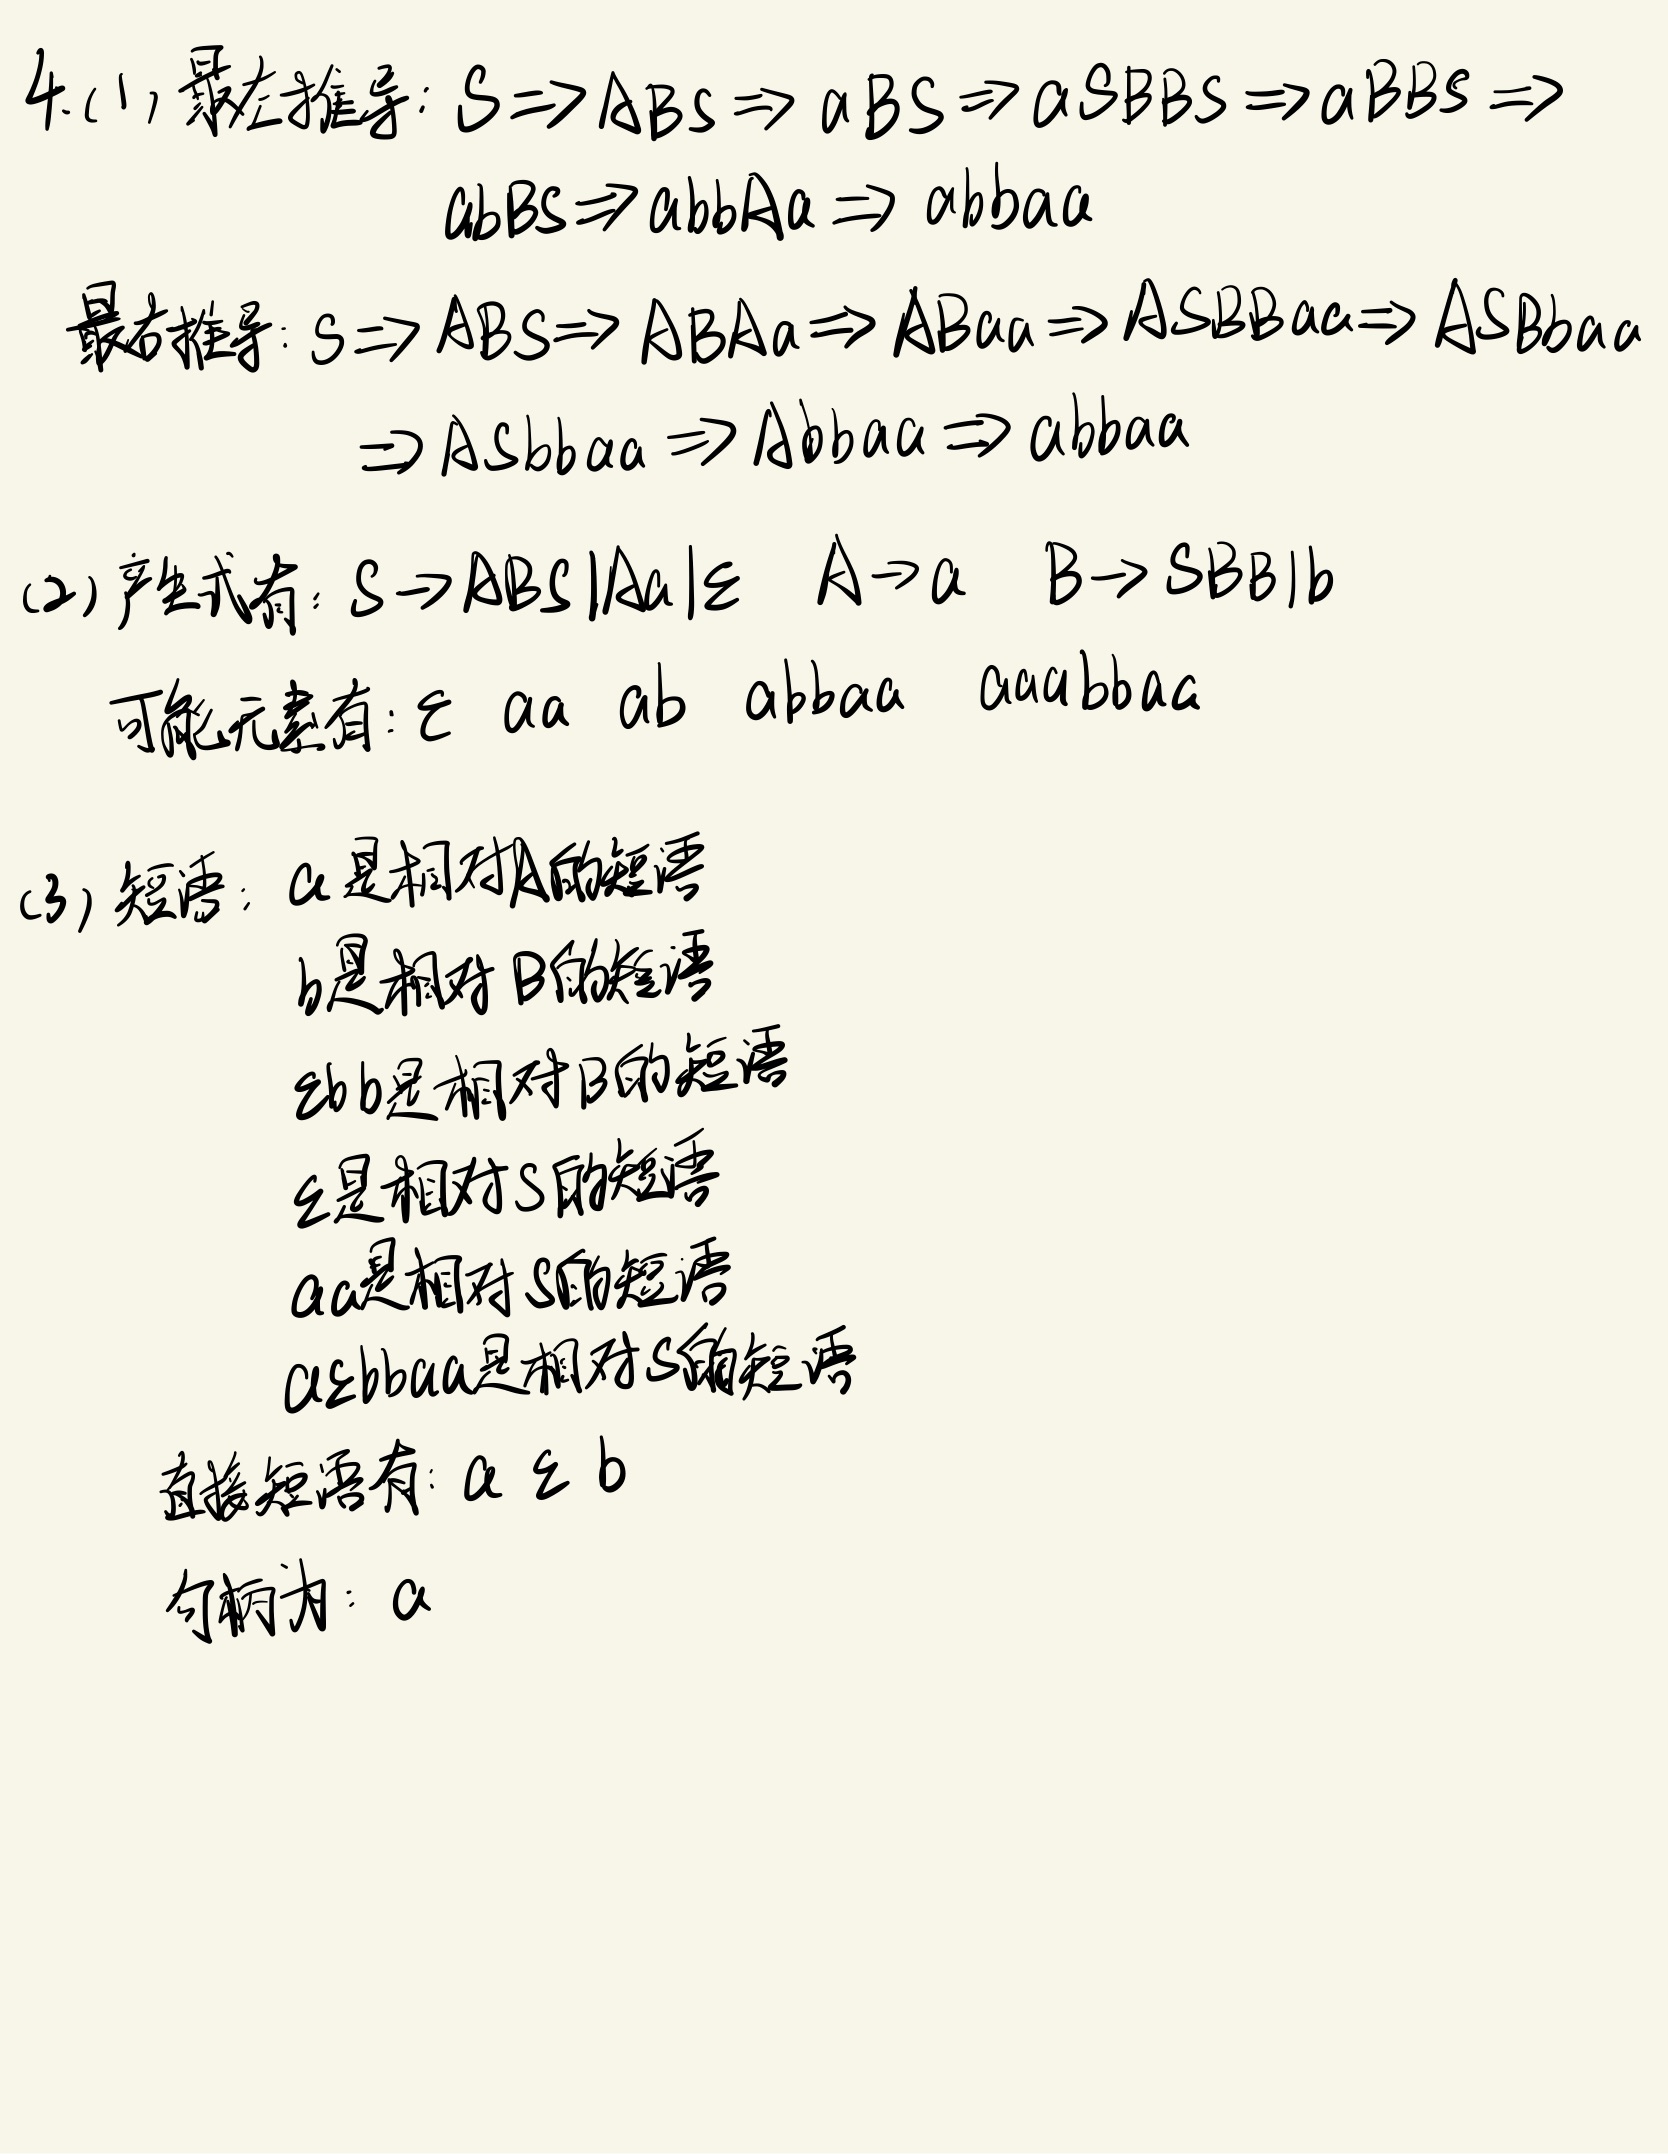 4.(1) 最左推导: S⇒ABS⇒aBS⇒aSBBS⇒aBBS⇒
abBS⇒abbAa⇒abbaa
最右推导: S⇒ABS⇒ABAa⇒ABaa⇒ASBBaa⇒ASBbaa
⇒ASbbaa⇒Abbaa⇒abbaa
(2) 产生式有: S→ABS|Aa|ε A→a B→SBB|b
可能元素有: ε aa ab abbaa aaabbaa
(3) 短语: a是相对A的短语
b是相对B的短语
εbb是相对B的短语
ε是相对S的短语
aa是相对S的短语
aεbbaa是相对S的短语
直接短语有: a ε b
句柄为: a